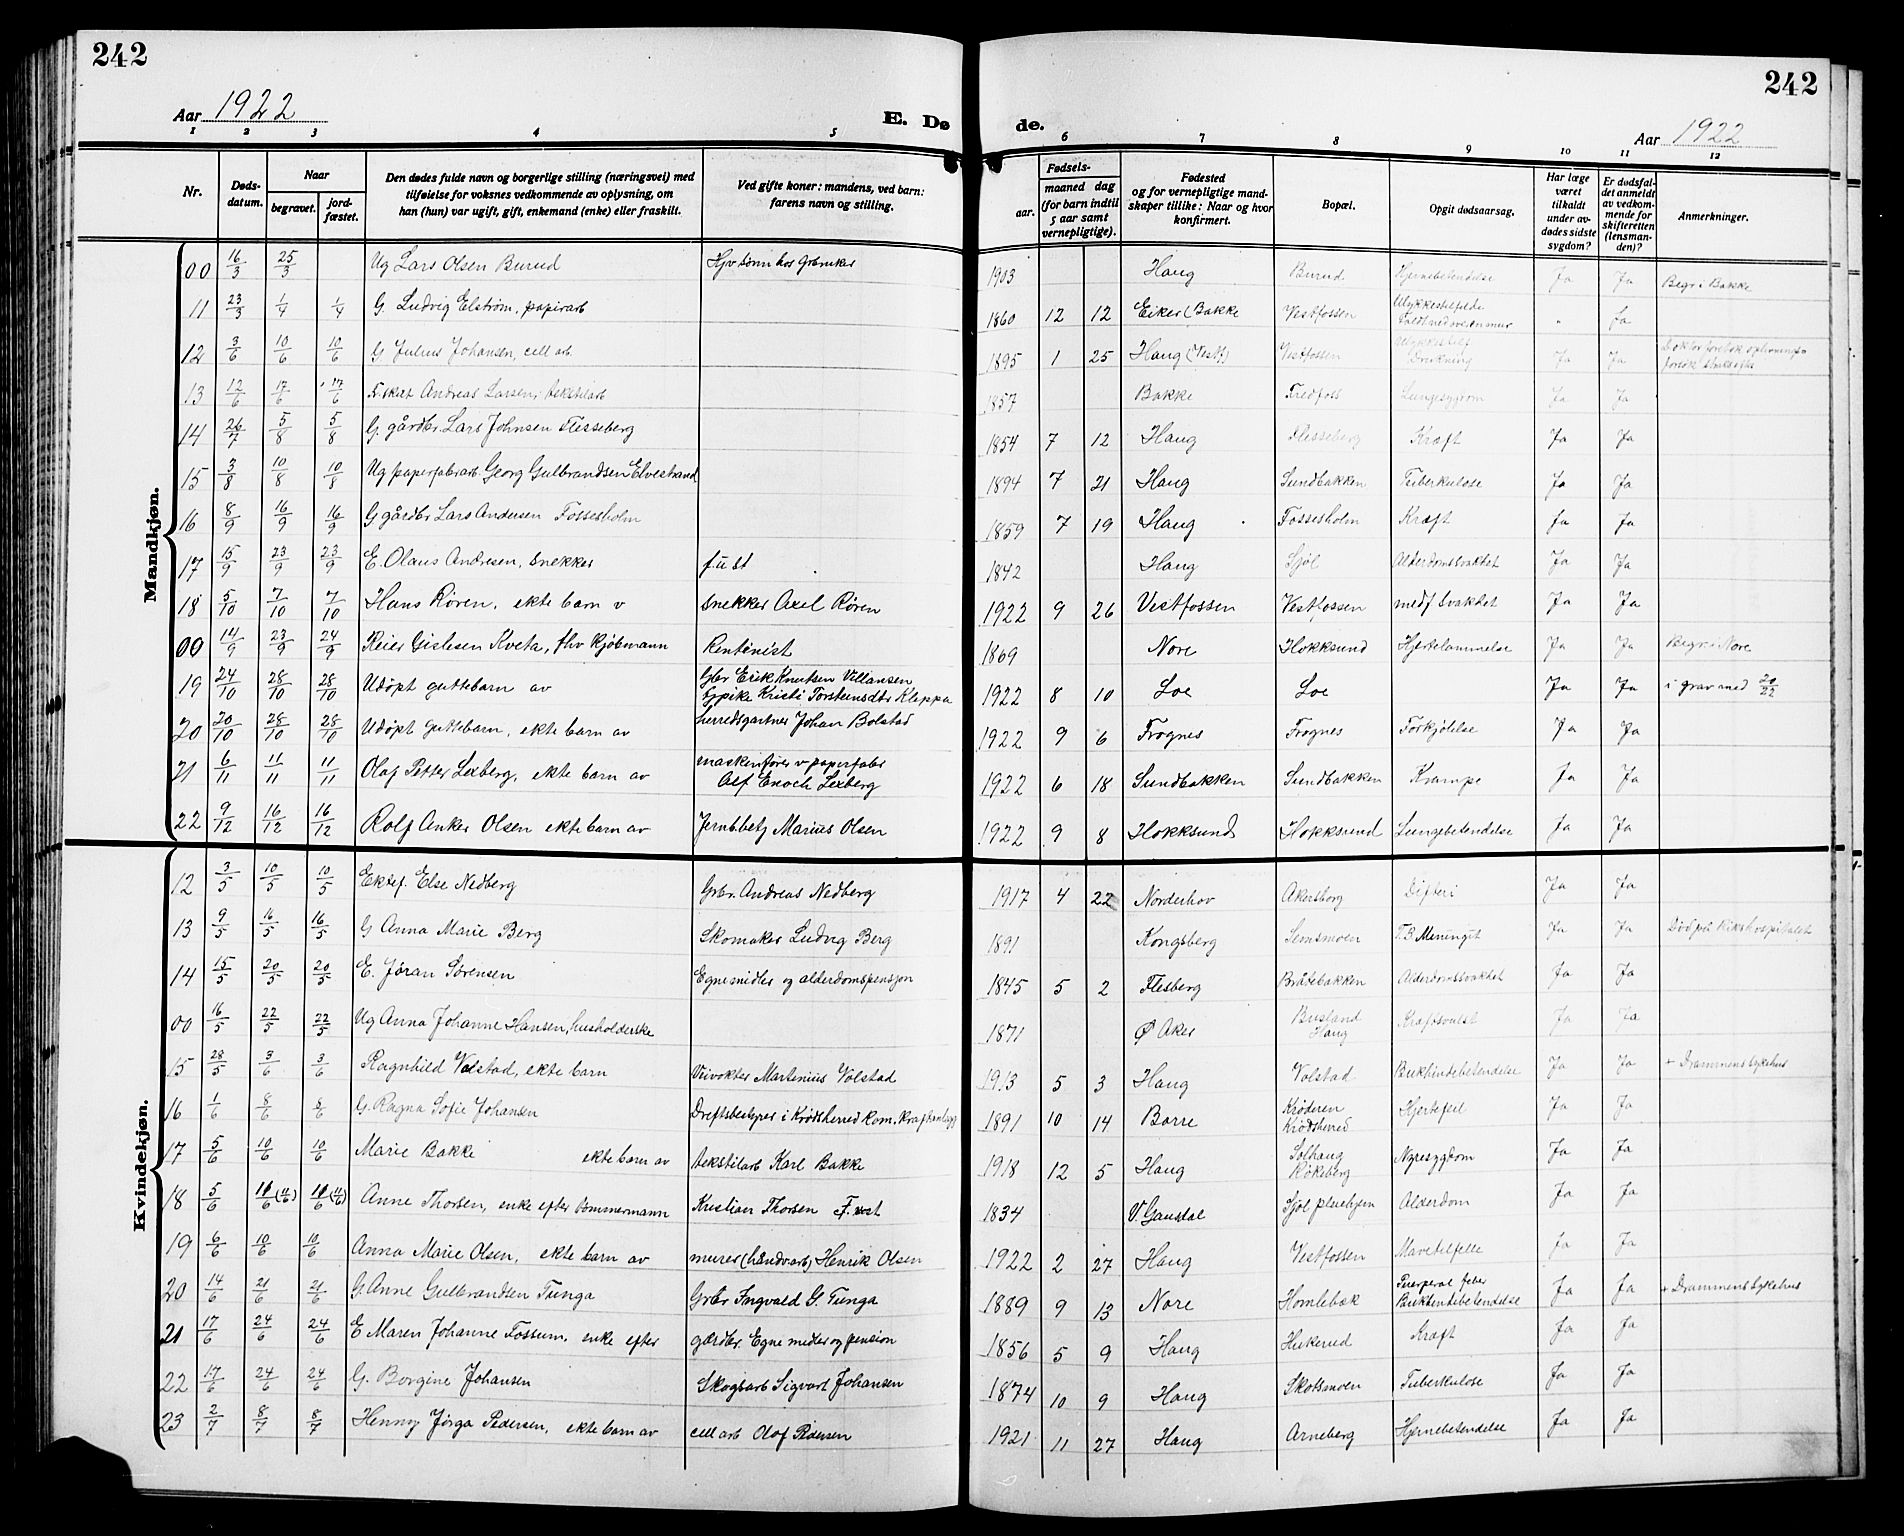 242
242
Aar 1922
E. Døde.
Aar 1922
1 2 3 4 5 6 7 8 9 10 11 12
Nr.
Døds-datum.
Naar
begravet.
jord-fæstet.
Den dødes fulde navn og borgerlige stilling (næringsvei) med
tilføielse for voksnes vedkommende av oplysning, om
han (hun) var ugift, gift, enkemand (enke) eller fraskilt.
Ved gifte koner: mandens, ved barn:
farens navn og stilling.
Fødsels-
aar.
maaned dag
(for barn indtil
5 aar samt
vernepligtige).
Fødested
og for vernepligtige mand-
skaper tillike: Naar og hvor
konfirmert.
Bopæl.
Opgit dødsaarsag.
Har læge
været
tilkaldt
under av-
dødes sidste
sygdom?
Er dødsfal-
det anmeldt
av vedkom-
mende for
skifteretten
(lensman-
den)?
Anmerkninger.
Mandkjøn.
00 16/3 25/3 Ug Lars Olsen Burud Hjv sønn hos Grbruker 1903 Haug Burud Hjernebetendelse Ja Ja Begr i Bakke
11 23/3 1/4 1/4 G. Ludvig Elstrøm, papirarb 1860 12 12 Eiker (Bakke Vestfossen Ulykkestilfelde " Ja
12 3/6 10/6 10/6 G. Julius Johansen, cell arb. 1895 1 25 Haug (Vestf) Vestfossen Drukning Ja Ja
13 12/6 17/6 17/6 Andreas Larsen, tekstilarb 1857 Bakke Fredfoss Lungesygdom Ja Ja
14 26/7 5/8 5/8 G. gårdbr. Lars Johnsen Flesseberg 1854 7 12 Haug Flesseberg Kræft Ja Ja
15 3/8 10/8 10/8 Ug paperfabrarb. Georg Gulbrandsen Elvestrand 1894 7 21 Haug Sundbakken Tuberkulose Ja Ja
16 8/9 16/9 16/9 G gårdbr Lars Andersen Fossesholm 1859 7 19 Haug Fossesholm Kræft Ja Ja
17 15/9 23/9 23/9 E. Olaus Andresen, snekker f.u st 1842 Haug Sjøl Alderdomssvakhet Ja Ja
18 5/10 7/10 7/10 Hans Røren, ekte barn v snekker Axel Røren 1922 9 26 Vestfossen Vestfossen medf svakhet Ja Ja
00 14/9 23/9 24/9 Reier Gislesen Kveta, fhv kjøbmann Rentenist 1869 Nore Hokksund Hjertelammelse Ja Ja Begr. i Nore
19 24/10 28/10 28/10 Udøpt guttebarn av Gbr Erik Knutsen Villansen
Gpike Kristi Torsteinsdtr Kleppa 1922 8 10 Loe Loe Ja Ja i grav med 20/22
20 20/10 28/10 28/10 Udøpt guttebarn, ekte barn av herredsgartner Johan Bolstad 1922 9 6 Frognes Frognes Forkjølelse Ja Ja
21 6/11 11/11 11/11 Olaf Petter Lexberg, ekte barn av maskinfører v paperfabr
Alf Enoch Lexberg 1922 6 18 Sundbakken Sundbakken Krampe Ja Ja
22 9/12 16/12 16/12 Rolf Anker Olsen ekte barn av Jernb.betj Marius Olsen 1922 9 8 Hokksund Hokksund Lungebetendelse Ja Ja
Kvindekjøn.
12 3/5 10/5 10/5 Ektef. Else Nedberg Grbr. Andreas Nedberg 1917 4 22 Norderhov Akersborg Difteri Ja Ja
13 9/5 16/5 16/5 G Anna Marie Berg Skomaker Ludvig Berg 1891 Kongsberg Semsmoen T.B. Meningit Ja Ja Død på Rikshospitalet
14 15/5 20/5 20/5 E. Jøran Sørensen Egne midler og alderdomspensjon 1845 5 2 Flesberg Bråtebakken Alderdomssvakhet Ja Ja
00 16/5 22/5 22/5 Ug Anna Johanne Hansen, husholderske 1871 Ø Aker Busland
Haug Kræftsvulst Ja Ja
15 28/5 3/6 3/6 Ragnhild Volstad, ekte barn Veivokter Martinius Volstad 1913 5 3 Haug Volstad Bukhindebetendelse Ja Ja + Drammens sykehus
16 1/6 8/6 8/6 G. Ragna Sofie Johansen Driftsbestyrer i Krødsherred Kom. Kraftanlegg 1891 10 14 Borre Krøderen
Krødsherred Hjertefeil Ja Ja
17 5/6 10/6 10/6 Marie Bakke ekte barn av tekstilarb Karl Bakke 1918 12 5 Haug Solhaug
Røkeberg Nyresygdom Ja Ja
18 5/6 Anne Thorsen, enke efter tømmermann Kristian Thorsen 1834 V. Gausdal Sjøl pleiehjem Alderdom Ja Ja
19 6/6 10/6 10/6 Anna Marie Olsen, ekte barn av murer (håndvarb) Henrik Olsen 1922 2 27 Haug Vestfossen Mavetilfelle Ja Ja
20 14/6 21/6 21/6 G. Anne Gulbrandsen Tunga Grbr Ingvald G. Tunga 1889 9 13 Nore Homlebæk Puerperal feber
Bukhindebetendelse Ja Ja + Drammens sykehus
21 17/6 24/6 24/6 E Maren Johanne Fossum, enke efter gårdbr. Egne midler og pension 1856 5 9 Haug Hukerud Kræft Ja Ja
22 17/6 24/6 24/6 G. Borgine Johansen Skogsarb Sigvart Johansen 1874 10 9 Haug Skotsmoen Tuberkulose Ja Ja
23 2/7 8/7 8/7 Henny Jørga Pedersen, ekte barn av cell arb Olaf Pedersen 1921 11 27 Haug Arneberg Hjernebetendelse Ja Ja